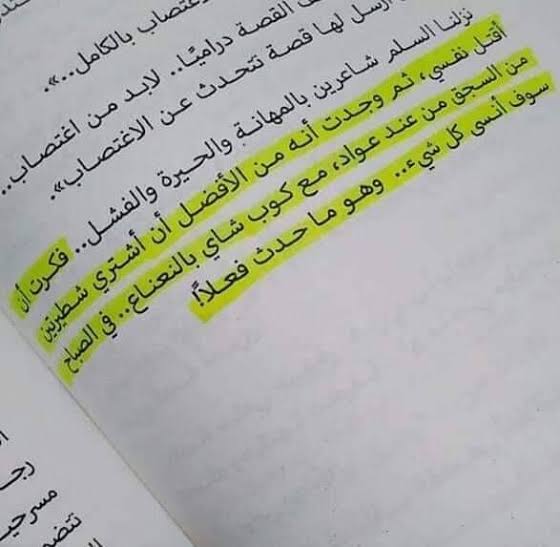 اغتصاب بالكامل..».
القصة دراميًا.. لابد من اغتصاب..
أرسل لها قصة تتحدث عن الاغتصاب».
نزلنا السلم شاعرين بالمهانة والحيرة والفشل.. فكرت أن
أقتل نفسي، ثم وجدت أنه من الأفضل أن أشتري شطيرتين
من السجق من عند عواد، مع كوب شاي بالنعناع.. في الصباح
سوف أنسى كل شيء.. وهو ما حدث فعلاً!
رجـ
مسرحيـ
تتضمـ